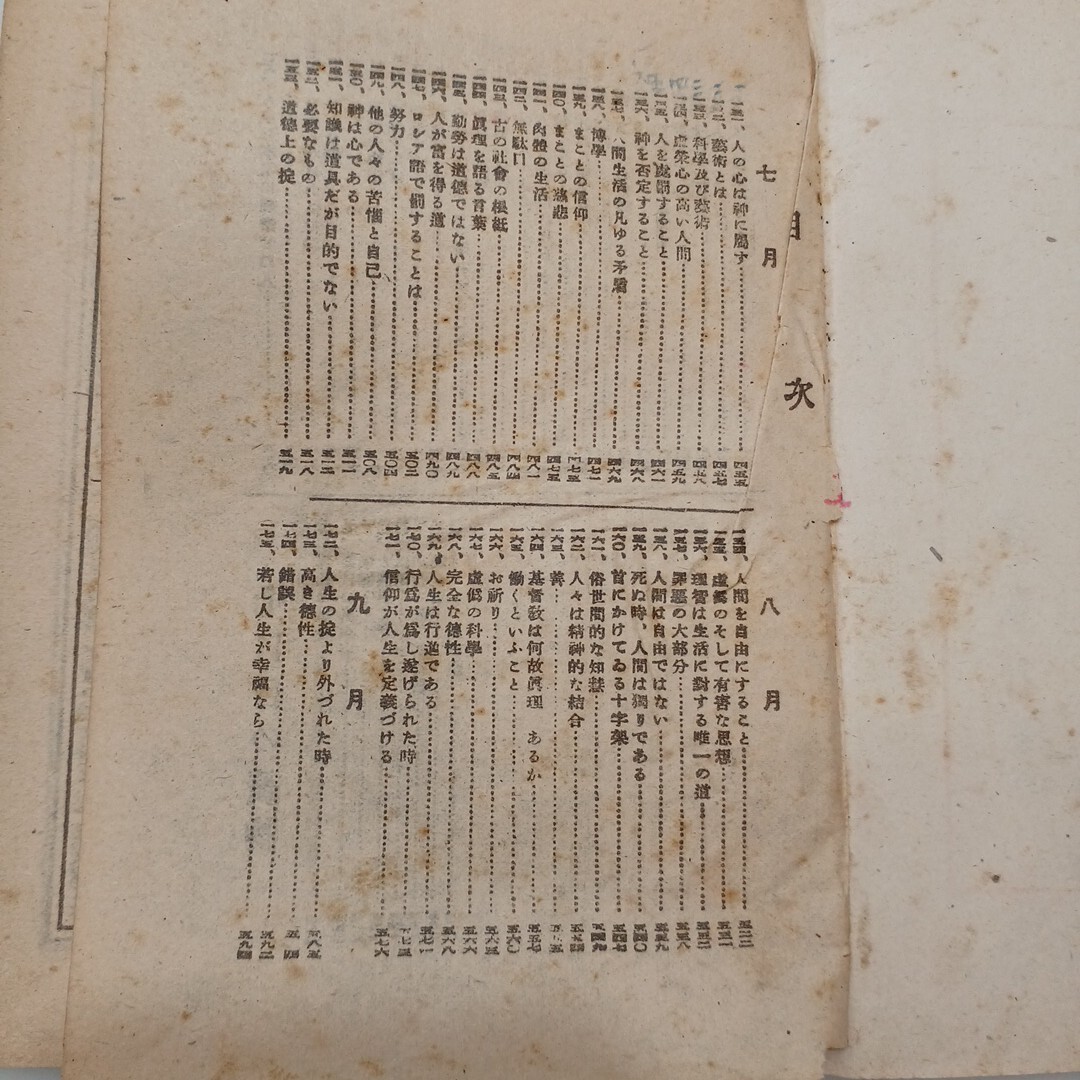 目次
七月
一三一、人の心は神に屬す……四五五
一三二、藝術とは……四五七
一三三、科學及び藝術……四五八
一三四、虛榮心の高い人間……四五九
一三五、人を處罰すること……四六一
一三六、神を否定すること……四六八
一三七、人間生活の凡ゆる矛盾……四六九
一三八、博學……四七一
一三九、まことの信仰……四七三
一四〇、まことの慈悲……四七五
一四一、肉體の生活……四八一
一四二、無駄口……四八四
一四三、古の社會の根紙……四八五
一四四、眞理を語る言葉……四八八
一四五、勤勞は道德ではない……四八九
一四六、人が富を得る道……四九〇
一四七、ロシア語で罰することは……五〇二
一四八、努力……五〇四
一四九、他の人々の苦惱と自己……五〇八
一五〇、神は心である……五一一
一五一、知識は道具だが目的でない……五一二
一五二、必要なもの……五一八
一五三、道德上の掟……五一九
八月
一五四、人間を自由にすること……五二二
一五五、虛僞のそして有害な思想……五三一
一五六、理智は生活に對する唯一の道……五三二
一五七、罪惡の大部分……五三八
一五八、人間は自由ではない……五三九
一五九、死ぬ時、人間は獨りである……五四〇
一六〇、首にかけてゐる十字架……五四七
一六一、俗世間的な知慧……五四九
一六二、人々は精神的な結合……五五四
一六三、善……五五
一六四、基督敎は何故眞理 あるか……五五七
一六五、働くといふこと……五六〇
一六六、お祈り……五六五
一六七、虛僞の科學……五六六
一六八、完全な德性……五六八
一六九、人生は行進である……五七一
一七〇、行爲が爲し遂げられた時……五七五
一七一、信仰が人生を定義づける……五七六
九月
一七二、人生の掟より外づれた時……五八五
一七三、高き德性……五 四
一七四、錯誤……五九二
一七五、若し人生が幸福なら……五九四